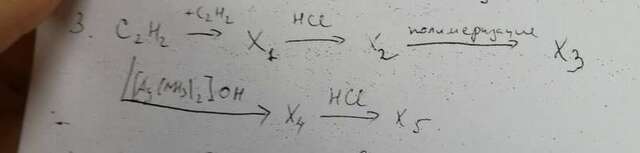 3. C₂H₂ +C₂H₂ → X₁ HCl → X₂ полимеризация → X₃
[Ag(NH₃)₂]OH → X₄ HCl → X₅